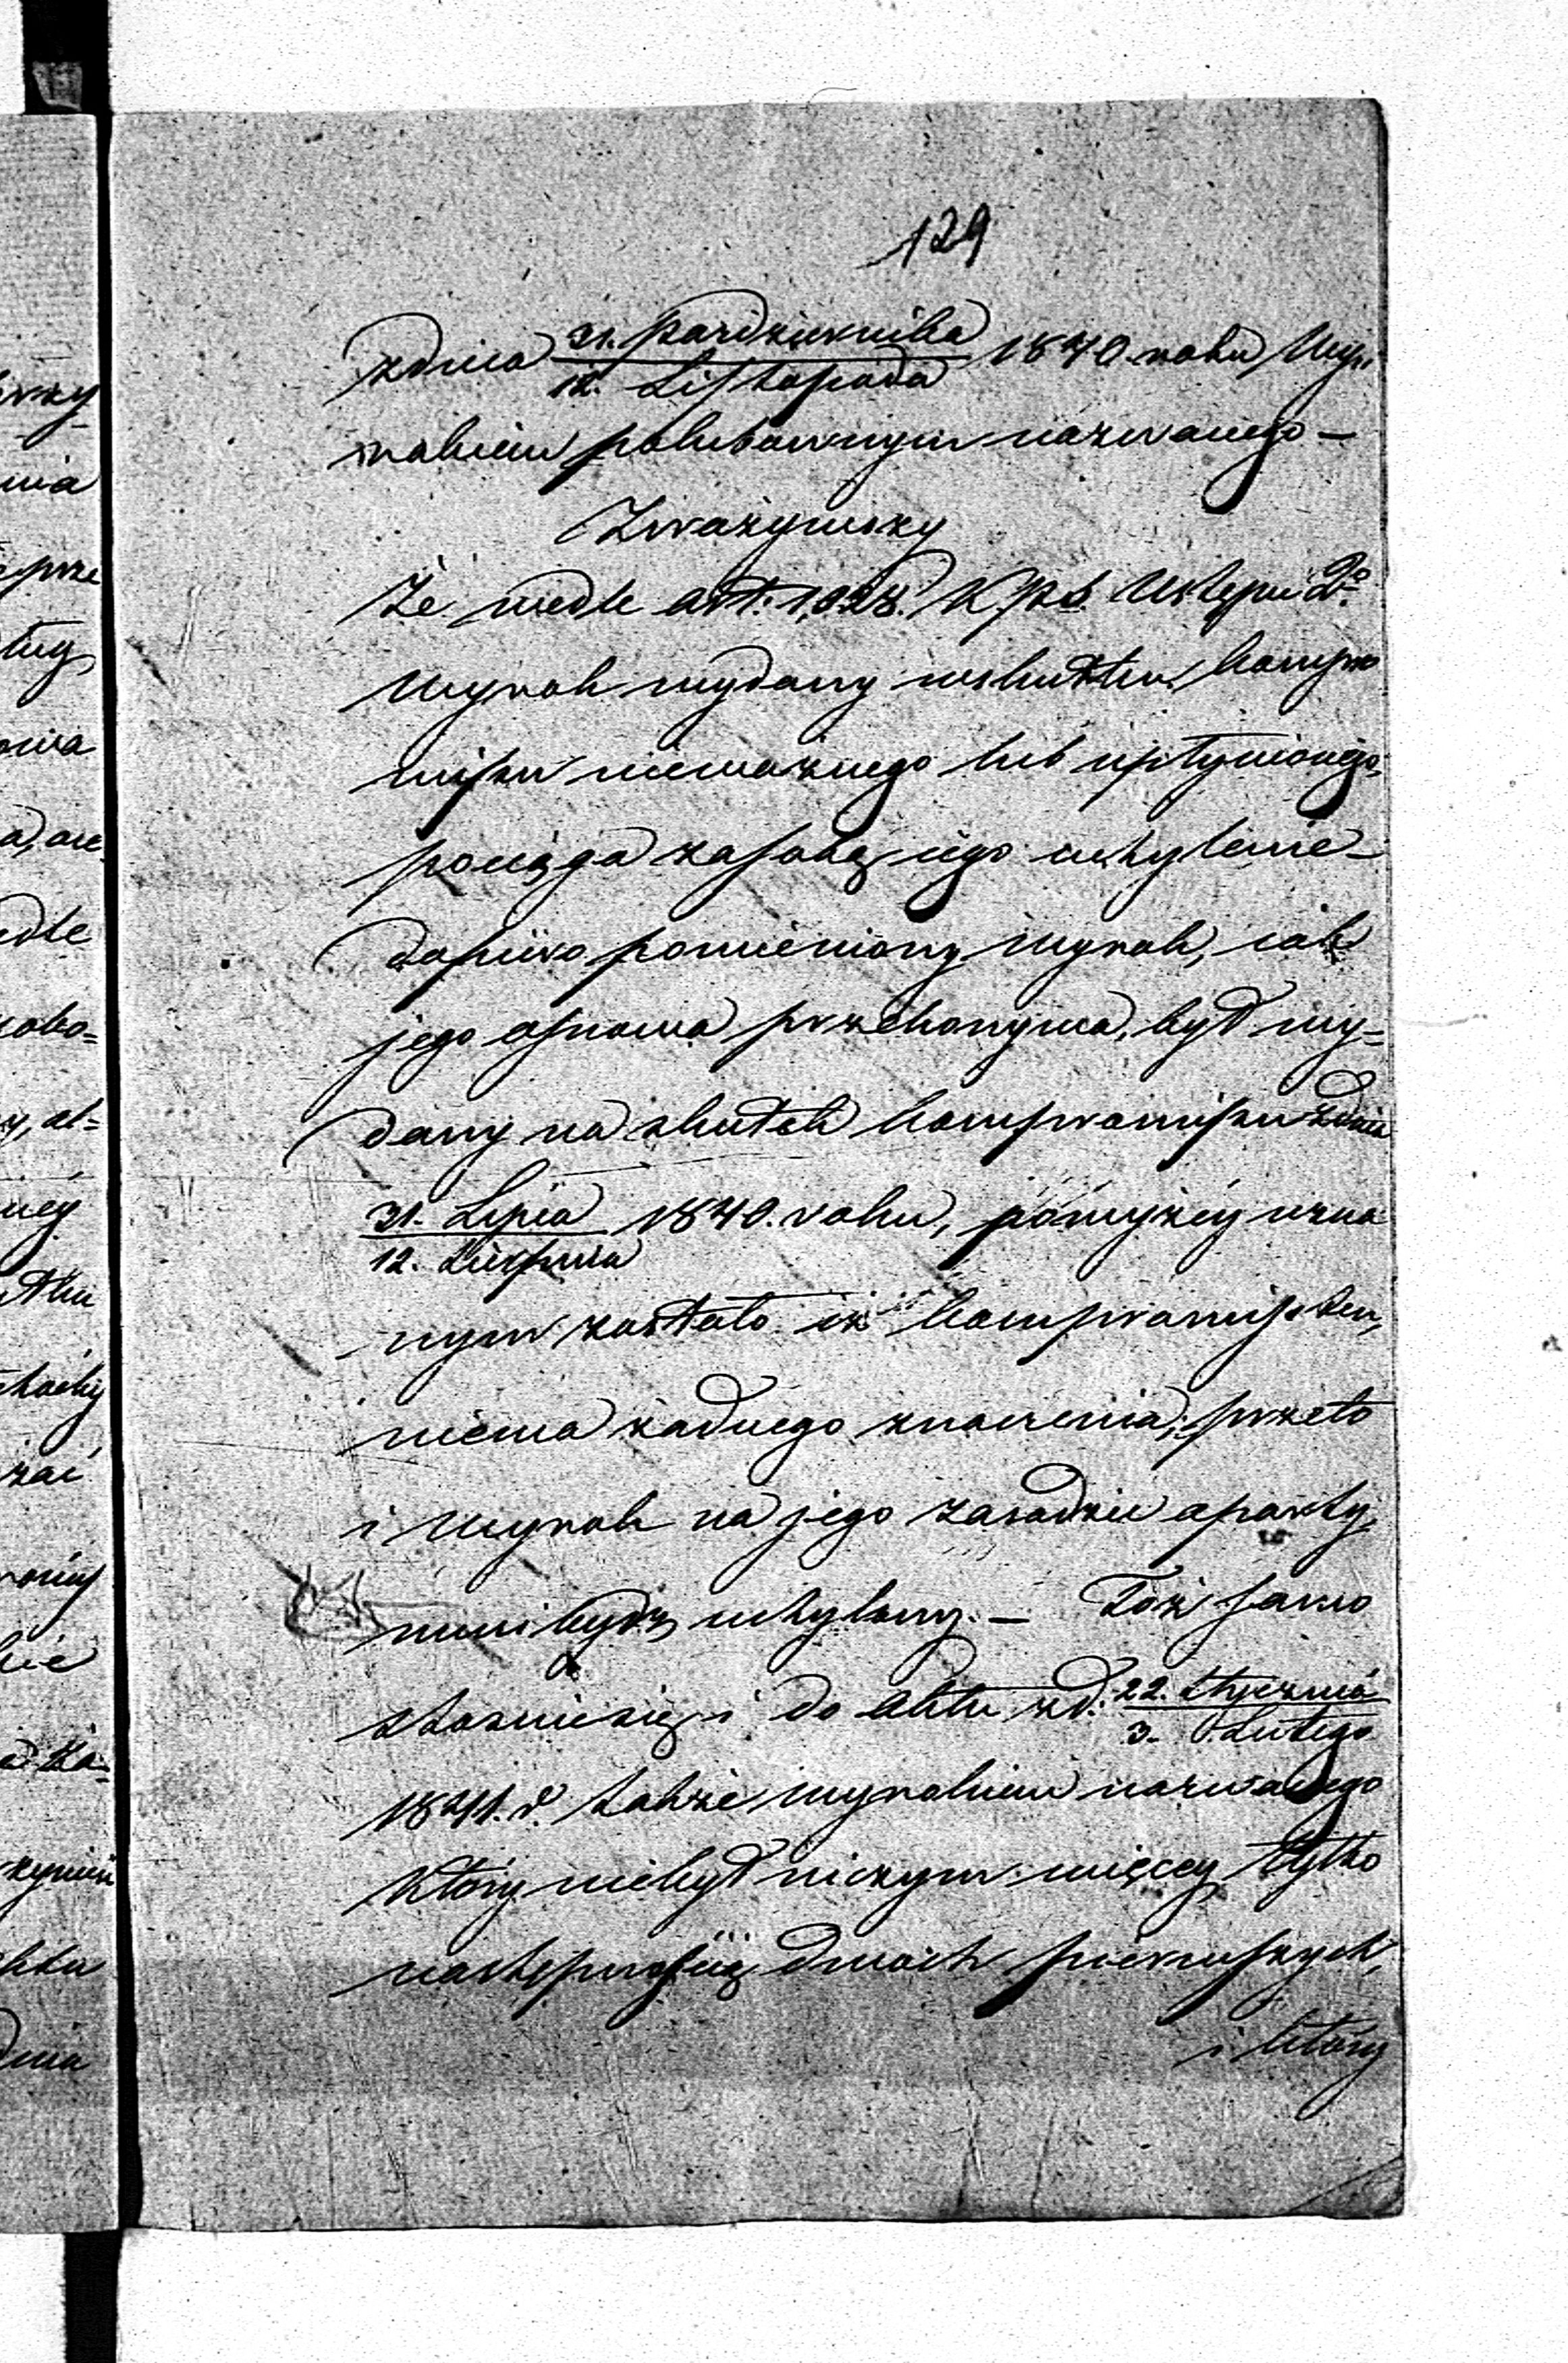 129
zdnia 31. Pazdziernika / 12. Listopada 1840. roku Wyro
rokiem polubownym nazwanego —
Zważywszy
Że wedle art: 1,028. K.P.S. Ustępu 2º
Wyrok wydany wskutku kompro
missu nieważnego lub upłynionego,
pociąga zasobą iego uchylenie —
dopiero pomieniony Wyrok, iak
jego osnowa przekonywa, był wy=
dany na skutek kompromissu zdnia
31. Lipca / 12. Sierpnia 1840. roku, powyżey uzna
nym zostało iż kompromiss ten,
niema żadnego znaczenia; przeto
i Wyrok na jego zasadzie oparty,
musi bydź uchylony. — Toż samo
stosuie się i do aktu zd. 22. Stycznia / 3. Lutego
1841. r. także wyrokiem nazwanego
który niebył niczym więcey tylko
następnością dwóch pierwszych,
i który
wia
ług
edle
zać
dnia